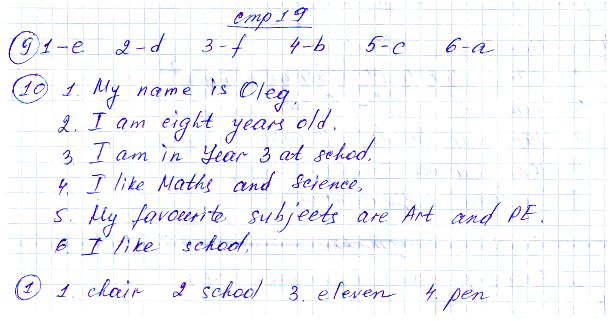 стр 19
9 1-e 2-d 3-f 4-b 5-c 6-a
10 1. My name is Oleg.
2. I am eight years old.
3. I am in Year 3 at school.
4. I like Maths and Science.
5. My favourite subjects are Art and PE.
6. I like school.
1 1. chair 2 school 3. eleven 4. pen